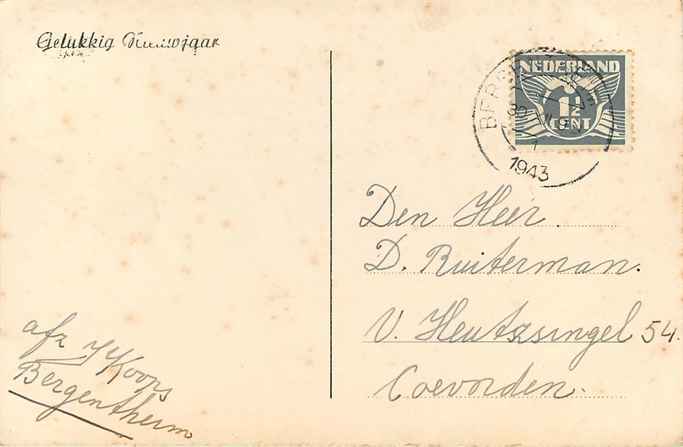 Gelukkig Nieuwjaar
NEDERLAND
1½
CENT
1943
Den Heer
D. Ruiterman.
V. Heutzsingel 54.
Coevorden.
afz J Koops
Bergentheim